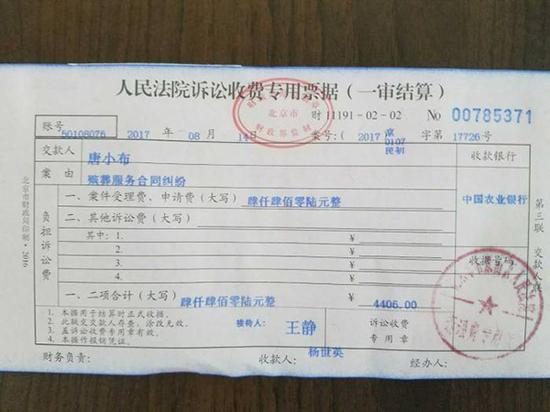 人民法院诉讼收费专用票据(一审结算)
北京市
财政部监制
财 11191-02-02 No 00785371
账号 50108076 2017 年 08 月 14日 案号:(2017 京0107民初 字第 17726号
交款人 唐小布 收款银行
案由 殡葬服务合同纠纷 中国农业银行
负担诉讼费
一、案件受理费、申请费(大写) 肆仟肆佰零陆元整
二、其他诉讼费(大写) ¥
其中:1. ¥
2. ¥
3. ¥ 收据官印
4. ¥
一、二项合计(大写) 肆仟肆佰零陆元整 ¥ 4406.00
1. 本据用于结算时正式收据。
2. 此联交交款人存查,涂改无效。
3. 盖诉讼收费专用章有效。
4. 本据作报销凭证。
接待人: 王静
诉讼收费专用章
财务负责: 收款人: 杨世英 经办人:
北京市财政局印制·2016
第三联 交款人